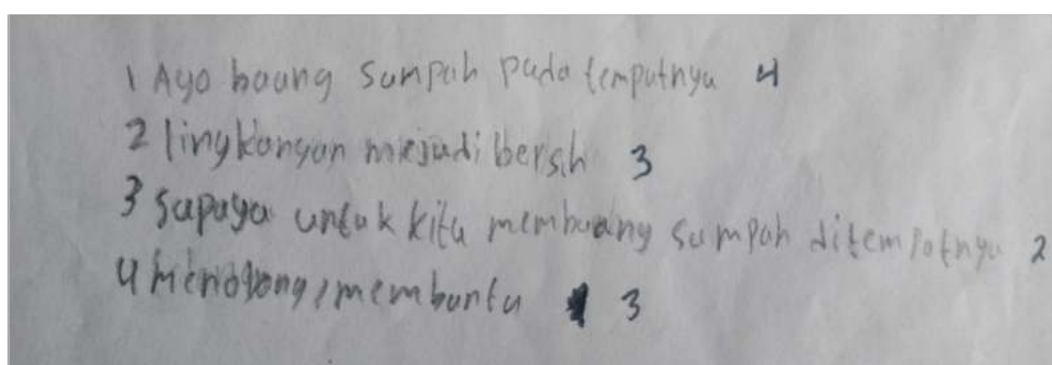 1 Ayo buang sampah pada tempatnya 4
2 lingkangan mejadi bersih 3
3 sapaya untuk kita membuang sampah ditempatnya 2
4 menolong, membantu 3